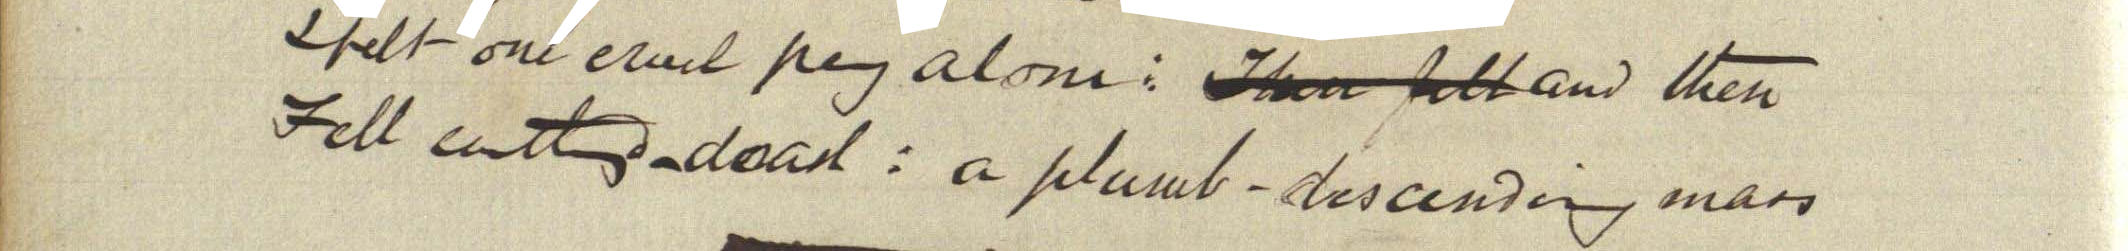 I felt one cruel pang alone : Then fell and then
Fell earthward - dead : a plumb - descending mass